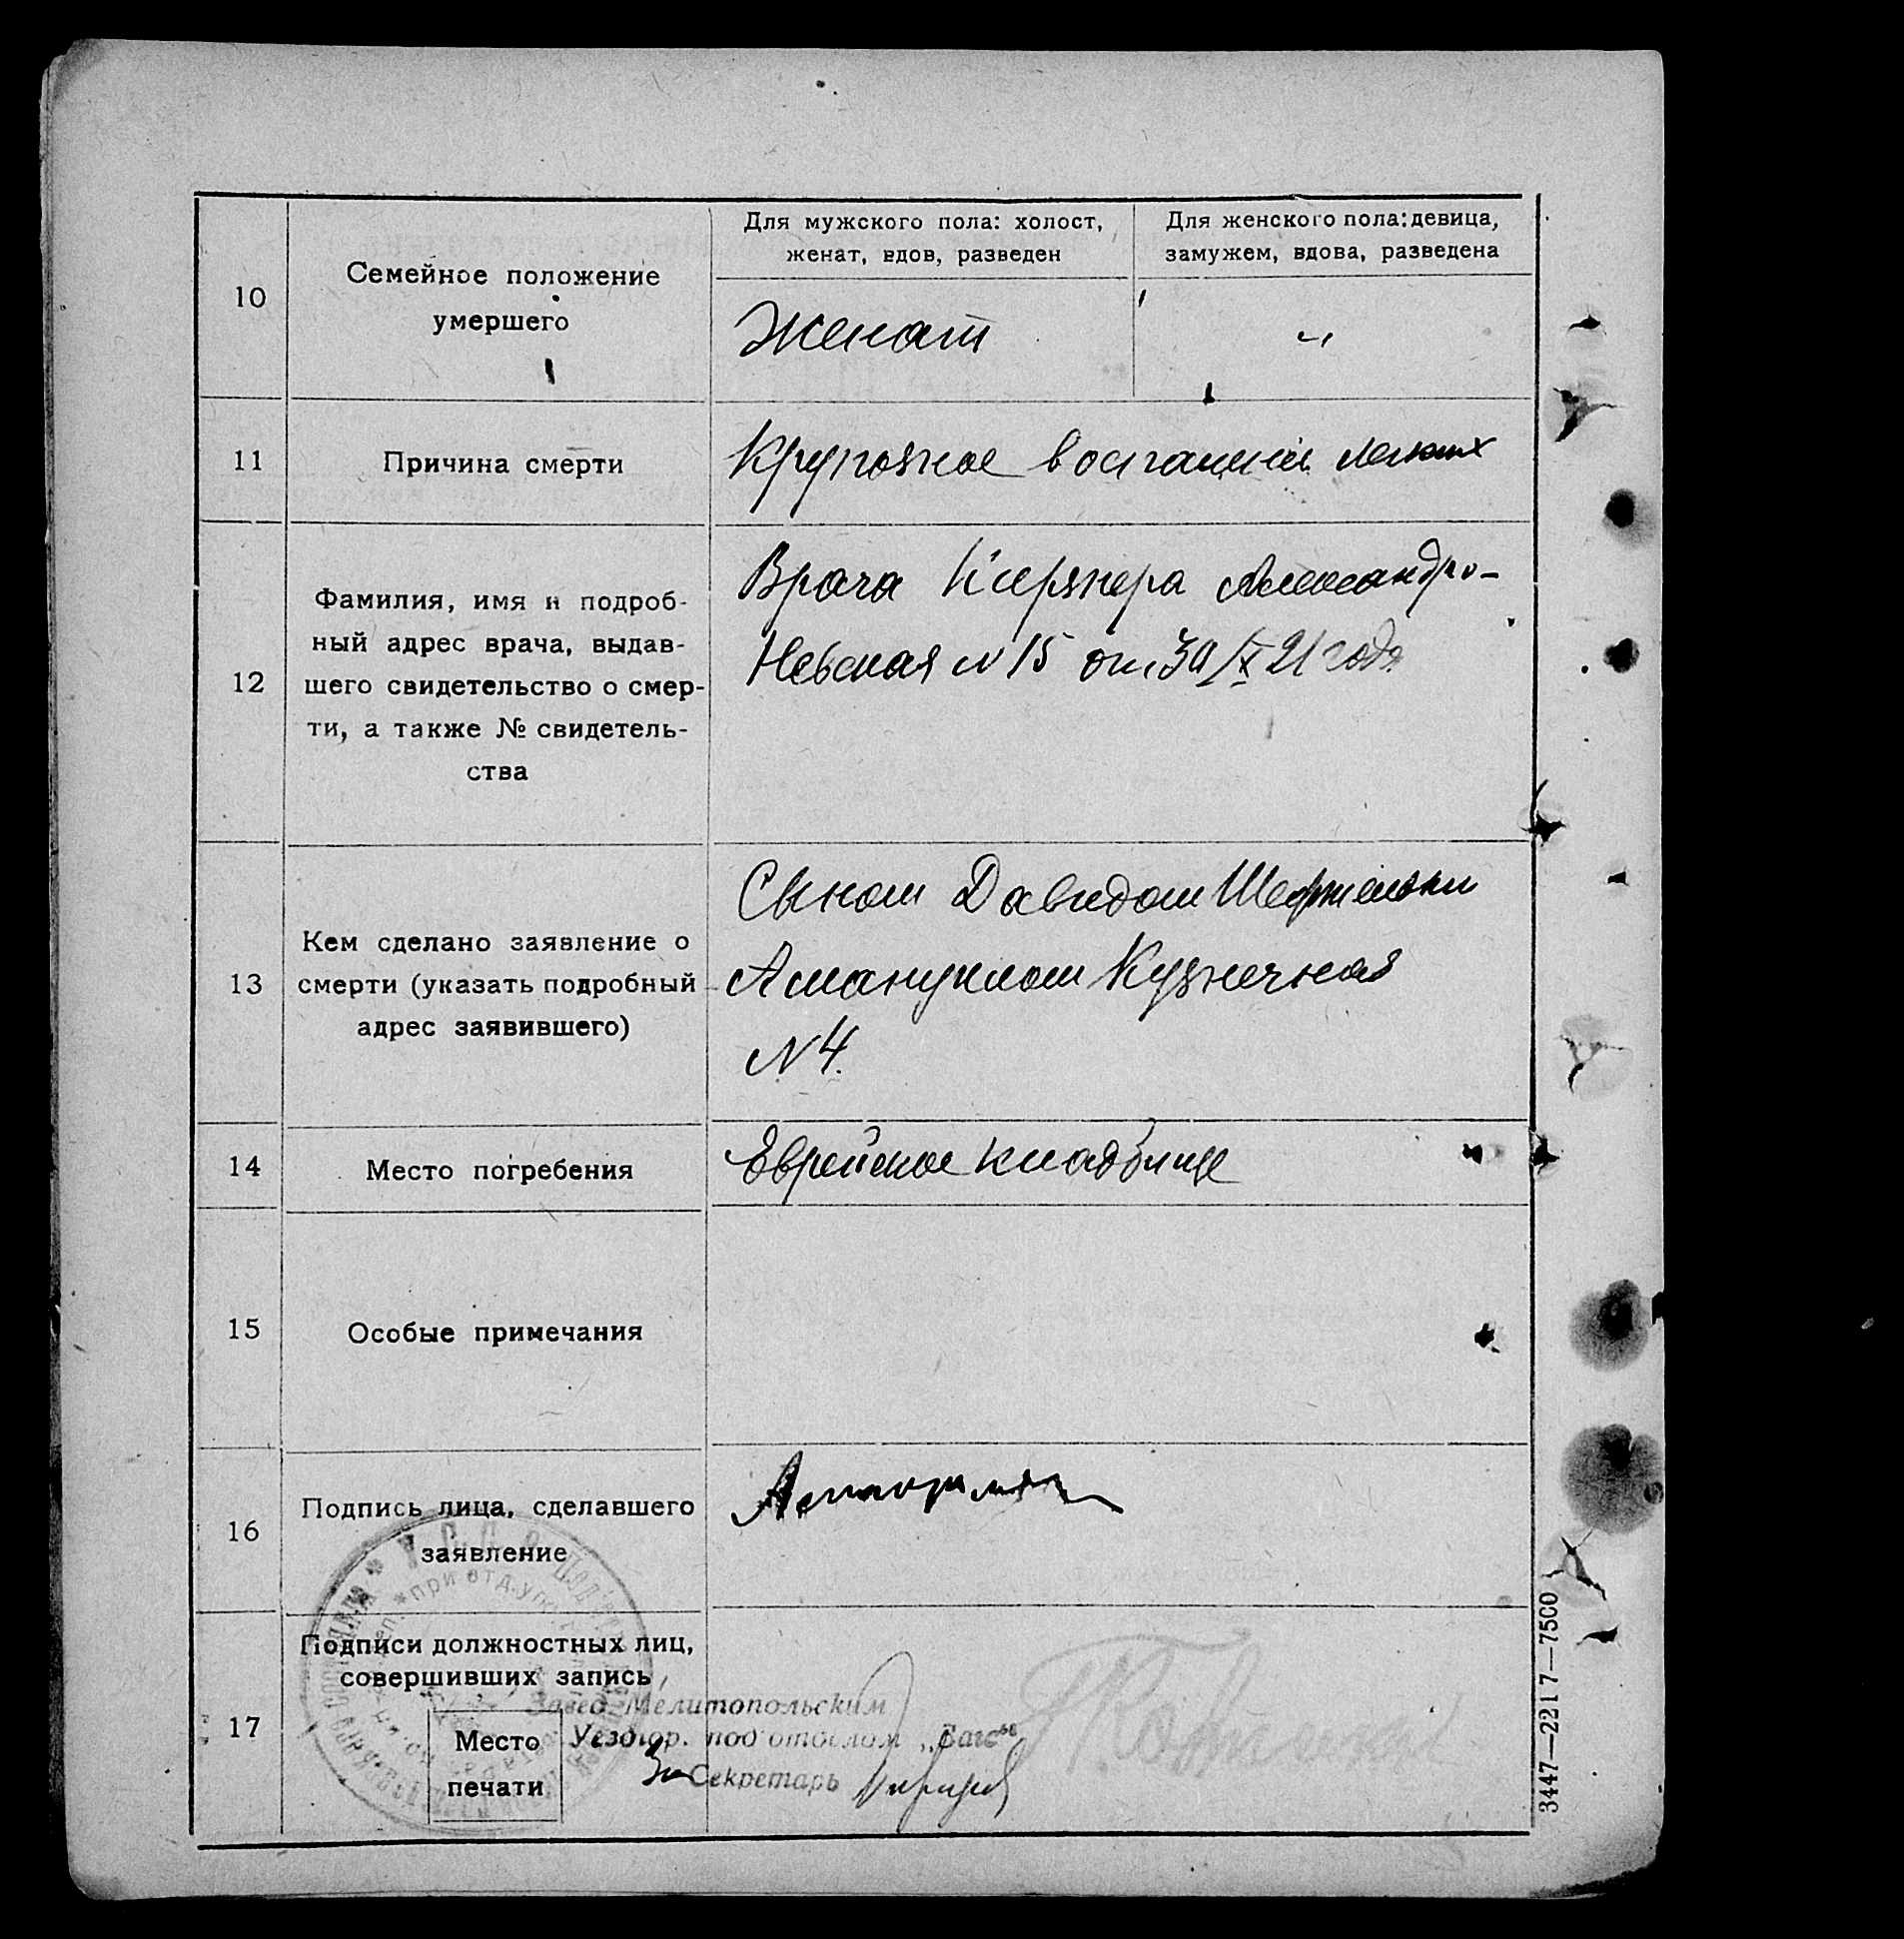 Для мужского пола: холост,
женат, вдов, разведен
Для женского пола: девица,
замужем, вдова, разведена
10
Семейное положение
умершего
Женат
"
11
Причина смерти
Крупозное воспаление легких
12
Фамилия, имя и подроб-
ный адрес врача, выдав-
шего свидетельство о смер-
ти, а также № свидетель-
ства
Врача Кирзнера Александро-
Невская N 15 от 30/X 21 года
13
Кем сделано заявление о
смерти (указать подробный
адрес заявившего)
Сыном Давидом
Кузнечная
N 4.
14
Место погребения
Еврейское кладбище
15
Особые примечания
16
Подпись лица, сделавшего
заявление
17
Подписи должностных лиц,
совершивших запись
Место
печати
Завед. Мелитопольским
Уездгор. под'отделом „Загс"
За Секретарь
при отд.упр.
3447—2217—7500